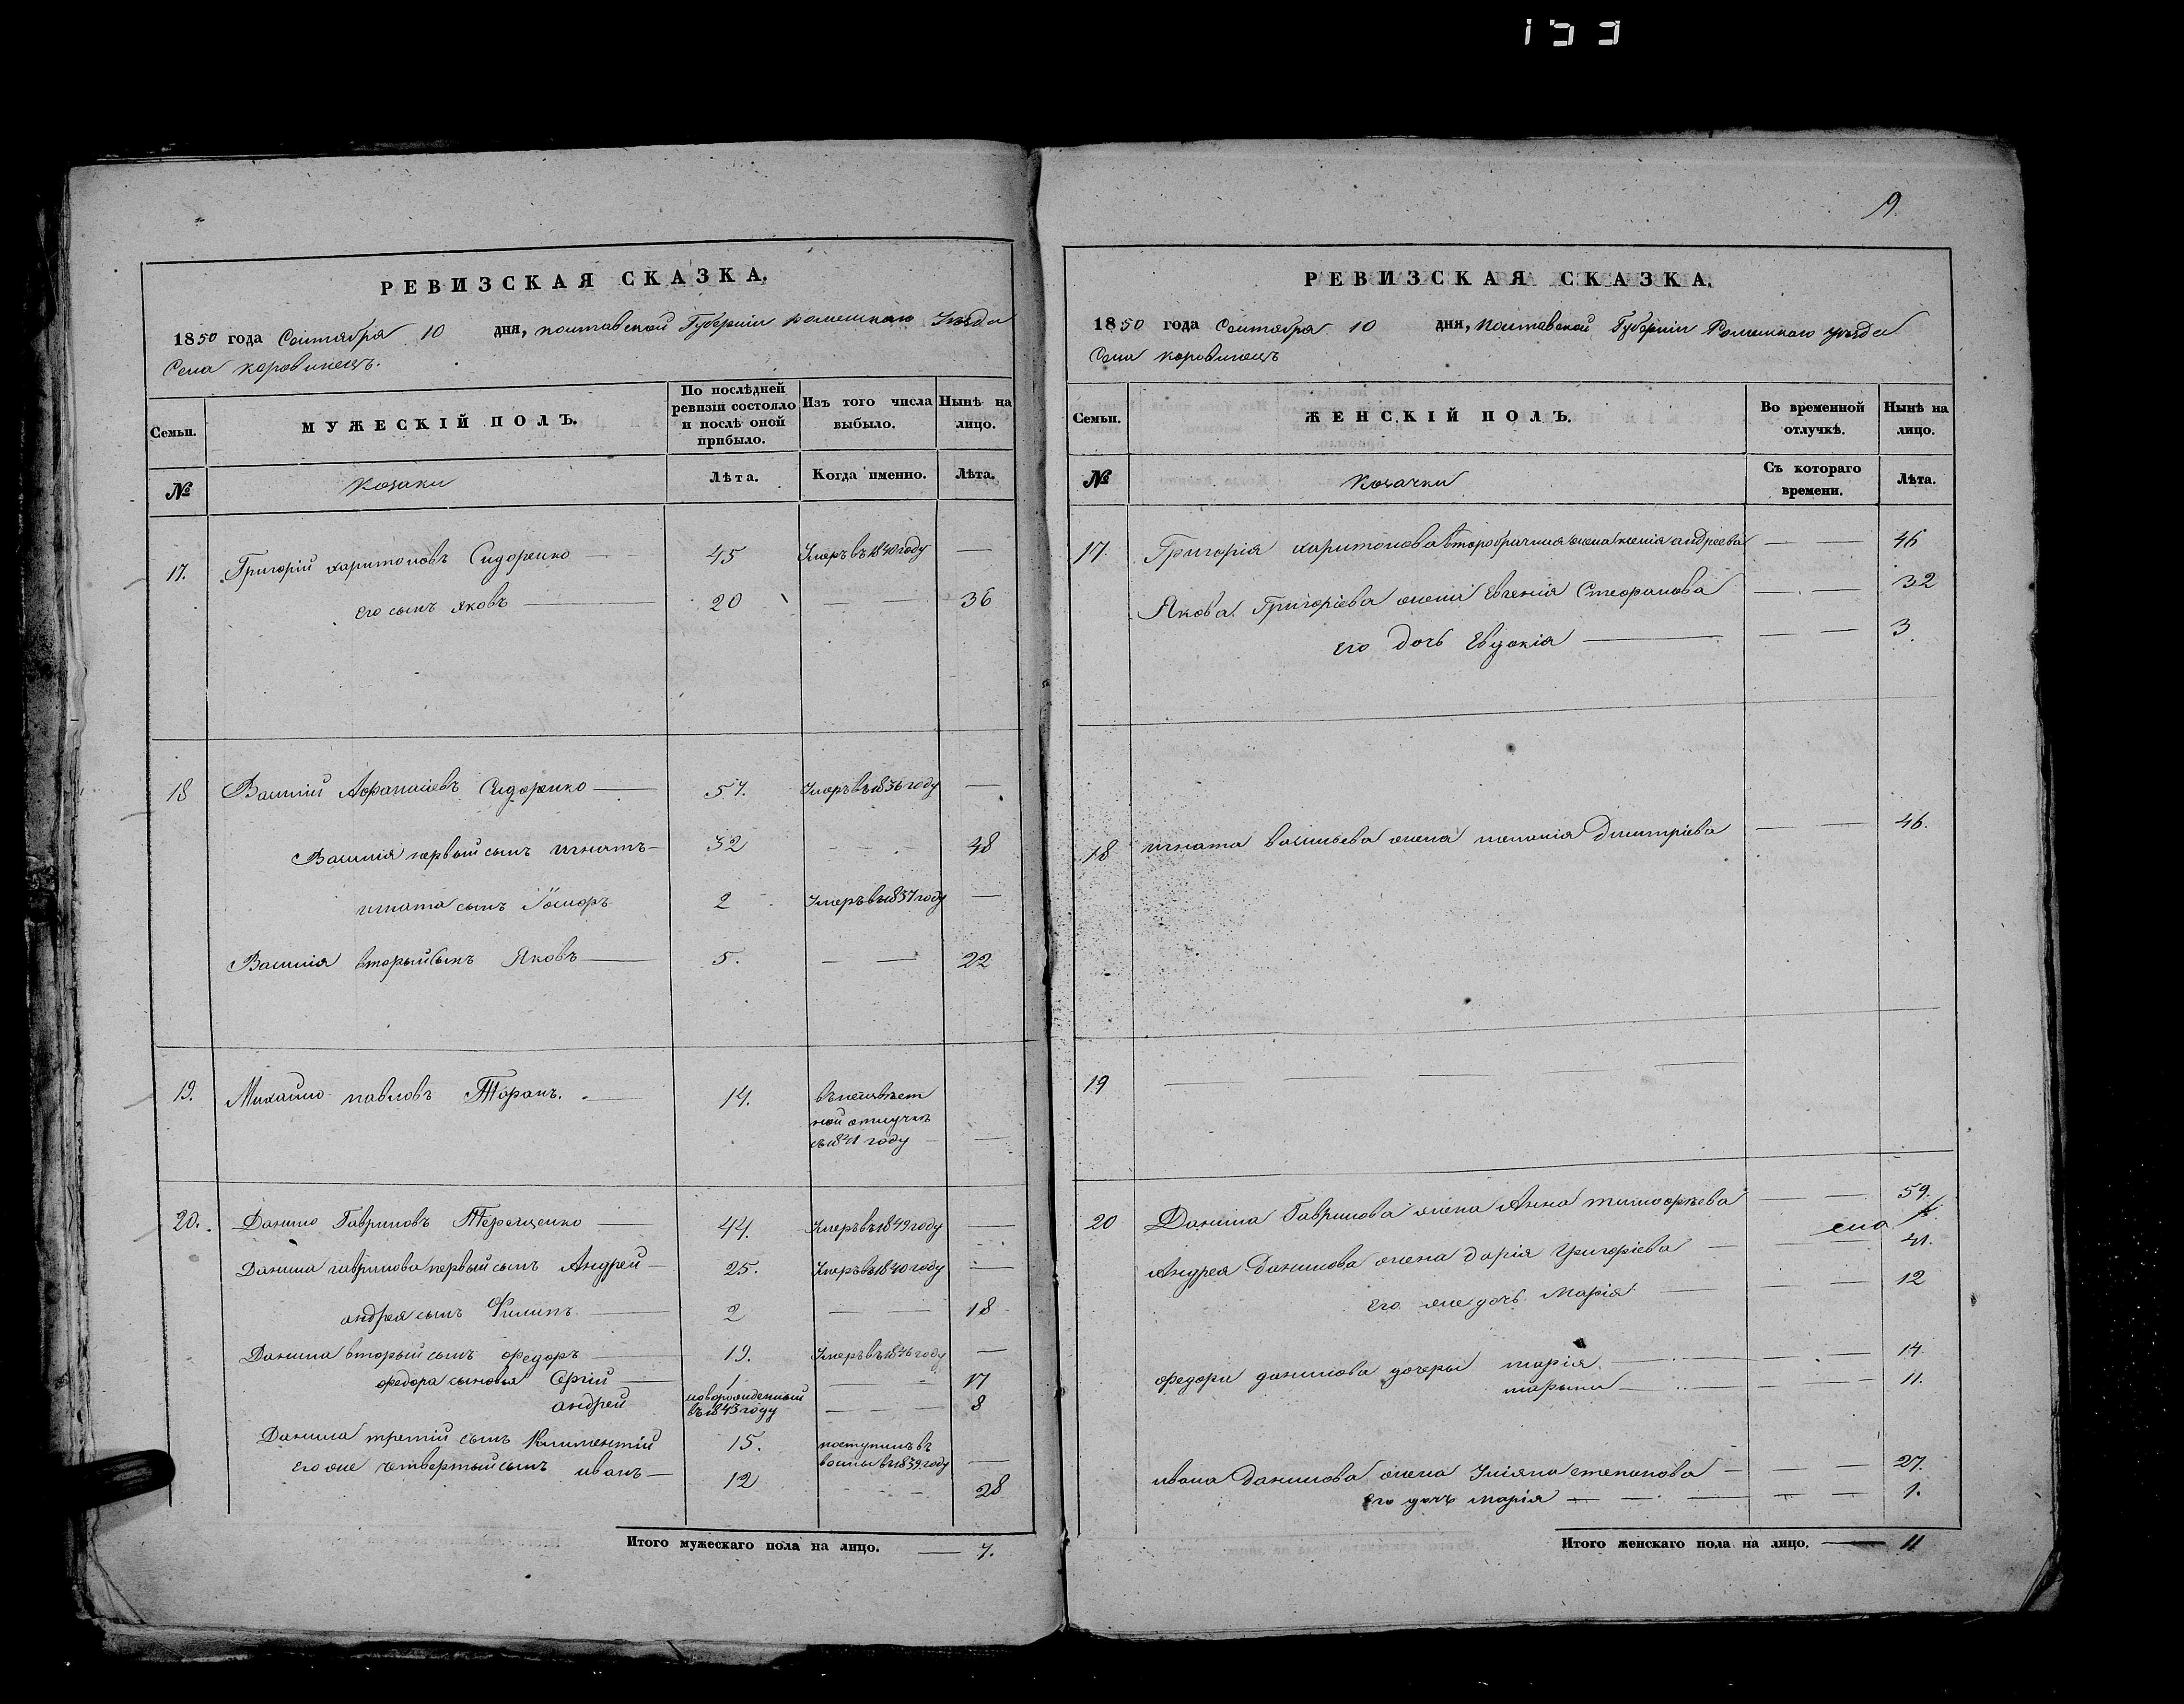 133
9.
РЕВИЗСКАЯ СКАЗКА.
1850 года Сентября 10 дня, полтавской Губерніи роменскаго Уезда
Села коровинецъ.
Семьи.
МУЖЕСКІЙ ПОЛЪ.
По послѣдней ревизіи состояло и послѣ оной прибыло.
Изъ того числа выбыло.
Нынѣ на лицо.
№
Козаки
Лѣта.
Когда именно.
Лѣта.
17. Григорій харитоновъ Сидоренко — 45 Умеръ въ 1840 году —
его сынъ яковъ — 20 — — 36
18 Василий Афанасіевъ Сидоренко — 57. Умеръ въ 1836 году —
Василія первый сынъ игнатъ — 32 — — 48
игната сынъ 2 Умеръ въ 1837 году —
Василія вторый сынъ Яковъ — 5. — — 22
19. Михайло павловъ Таранъ. — 14. въ неизвѣст
ной отлучкѣ
съ 1841 году —
20. Данило Гавриловъ Терещенко — 44. Умеръ въ 1849 году —
Данила гаврилова первый сынъ Андрей — 25. Умеръ въ 1840 году —
андрея сынъ Филипъ — 2 — — 18
Данила вторый сынъ федоръ — 19. Умеръ въ 1846 году —
федора сыновья Сергій — 1 — — 17
андрей новорожденный
въ 1843 году — — 8
Данила третій сынъ Климентій 15. поступилъ въ
воины въ 1839 году —
его же четвертый сынъ иванъ — 12 — — 28
Итого мужескаго пола на лицо. — 7.
РЕВИЗСКАЯ СКАЗКА.
1850 года Сентября 10 дня, полтавской Губерніи Роменскаго уезда
Села коровинецъ
Семьи.
ЖЕНСКІЙ ПОЛЪ.
Во временной отлучкѣ.
Нынѣ на лицо.
№
Козачки
Съ котораго времени.
Лѣта.
17. Григорія харитонова второбрачная жена ксенія андреева — — 46
Якова Григоріева жена Евгенія Стефанова — — 32
его дочь Евдокія — — — 3.
18 игната васильева жена меланія Дмитріева — — 46.
19 — — — — —
20 Данила Гаврилова жена Анна тимофѣева — — 59.
Андрея Данилова жена дарія Григоріева — 41.
его же дочь Марія — — — 12
федора данилова дочеры марія — — — 14
марына — — — 11.
ивана Данилова жена Уліяна степанова — — — 27.
его дочь марія — — — 1.
Итого женскаго пола на лицо. — 11